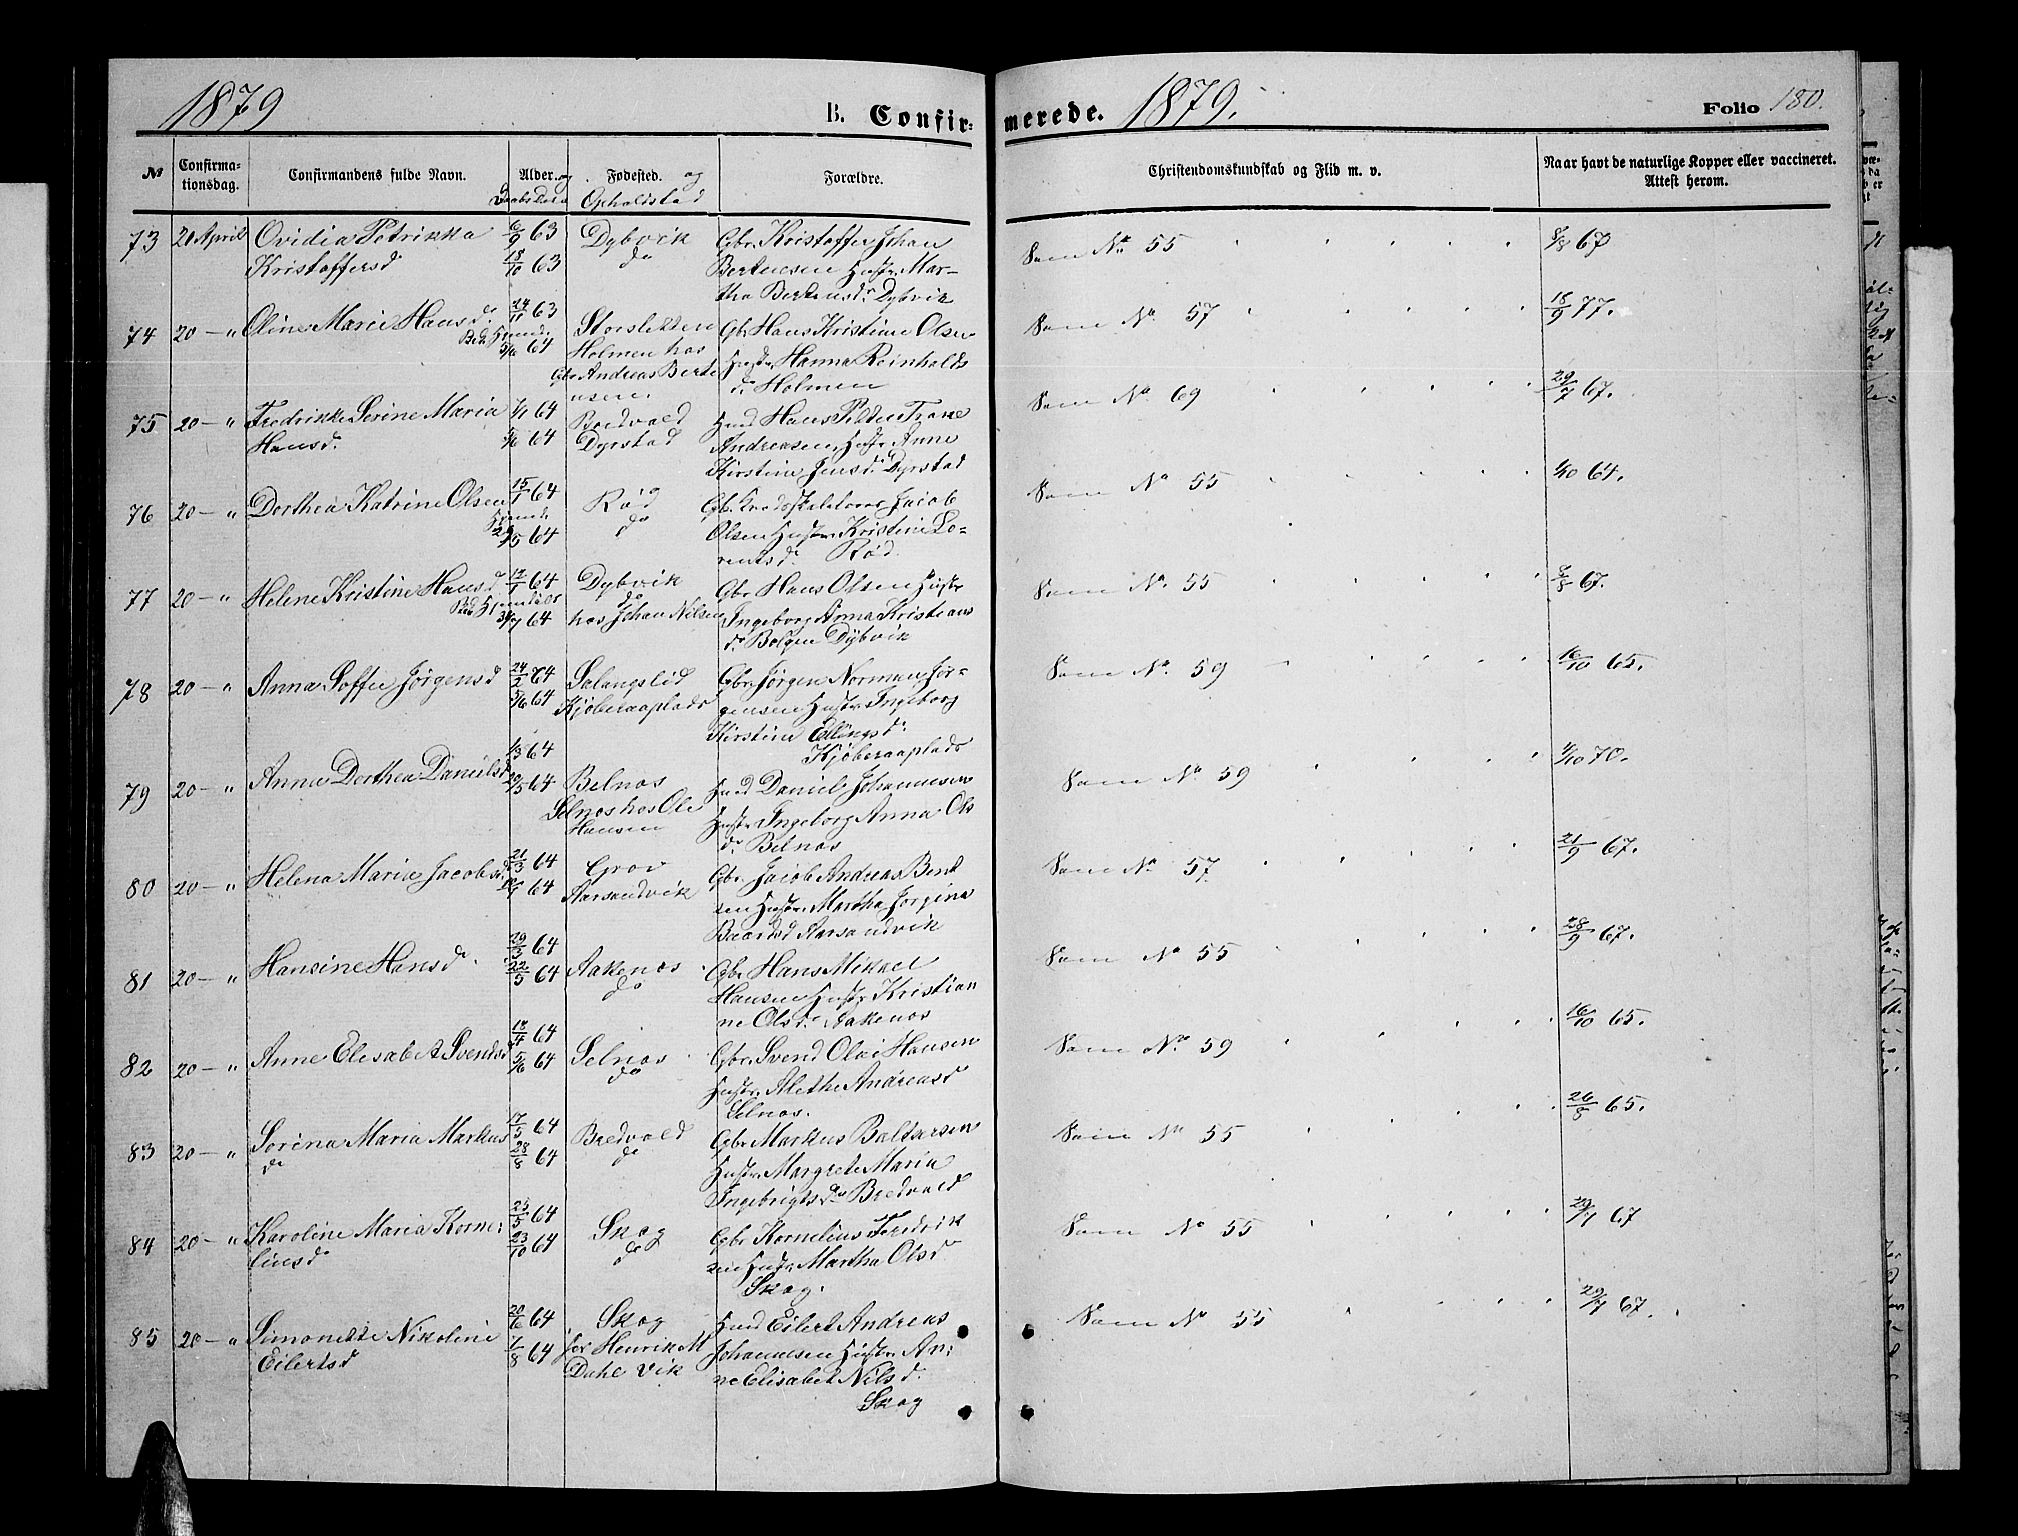 1879
B. Confir-
merede. 1879.
Folio 180.
No
Confirma-
tionsdag.
Confirmandens fulde Navn.
Alder. og
Daabsdato
Fødested. og
Opholdstad
Forældre.
Christendomskundskab og Flid m. v.
Naar havt de naturlige Kopper eller vaccineret.
Attest herom.
73 20 April Ovidia Petrikka
Kristoffersd
6/9 63
18/10 63
Dybvik
do
Gbr. Kristoffer Johan
Bertensen Hustr. Mar-
tha Bertensdr Dybvik
Som No. 55
8/8 67
74 20 — " Oline Marie Hansd.
24/11 63
5/6 64
Storsletten
Holmen hos
Gbr Andreas Bert
nsen.
Gbr Hans Kristian Olsen
Hustr. Hanna Reinholds
dr Holmen
Som No. 57
18/9 77.
75 20 — " Fredrikke Serine Maria
Hansd.
1/1 64
5/6 64
Bredvold
Dyrstad
Hmd Hans Peltter Trane
Andreasen, Hustr Anne
Kirstine Jensd. Dyrstad
Som No 69
29/7 67.
76 20 — " Dorthea Katrine Olsen
15/1 64
/5 64
Rød
do
Gbr. Jacob
Olsen Hustr. Kristine Lo-
rentsd. Rød.
Som No 55
1/10 64.
77 20 — " Helene Kristine Hansd.
12/1 64
/7 64
Dybvik
do
hos Johan Nilsen
Gbr Hans Olsen Hustr
Ingeborg Anna Kristians
dr Bolgen Dybvik
Som No. 55
8/8 67.
78 20 — " Anna Soffie Jørgensd
24/2 64
5/6 64
Salangslid
Kjøberaaplads
Gbr. Jørgen Norman Jør-
gensen Hustr. Ingeborg
Kirstine Ellingsd.
Kjøberaaplads
Som No. 59
16/10 65.
79 20 — " Anne Dorthea Danielsd
1/3 64
/5 64
Belnæs
Selnæs hos Ole
Hansen
Hmd Daniel Johannesen
Hustr Ingeborg Anna Ols
dr Belnæs
Som No 59
1/10 70.
80 20 — " Helena Maria Jacobsd
21/3 64
64
Grov
Aarsandvik
Gbr. Jacob Andreas Bent
sen Hustr. Martha Jorgina
Baardsd Aarsandvik
Som No 57
21/9 67.
81 20 — " Hansine Hansdr
29/3 64
22/5 64
Aakenæs
do
Gbr Hans Mikael
Hansen Hustr Kristian
ne Olsdr. Aakenæs
Som No 55
28/9 67.
82 20 — " Anne Elisabet Svendsd
18/4 64
5/6 64
Selnæs
do
Gbr. Svend Olai Hansen
Hustr. Alethe Andreasd
Selnæs.
Som No 59
16/10 65.
83 20 — " Sorina Maria Markus
dr
17/5 64
28/8 64
Bredvold
do
Gbr Markus Baltsersen
Hustr. Margrete Maria
Ingebrigtsdr Bredvold
Som No 55
26/8 65.
84 20 — " Karoline Maria Korne-
liusdr
25/5 64
23/10 64
Skog
do
Gbr Kornelius Fredrik
sen Hustr Martha Olsd
Skog.
Som No 55
29/7 67
85 20 — " Simonette Nikoline
Eilertsd
20/6 64
7/8 64
Skog
hos Henrik M
Dahl Vik
Hmd Eilert Andreas
Johannesen Hustr. An-
ne Elisabet Nilsd.
Skog
Som No 55
29/7 67.